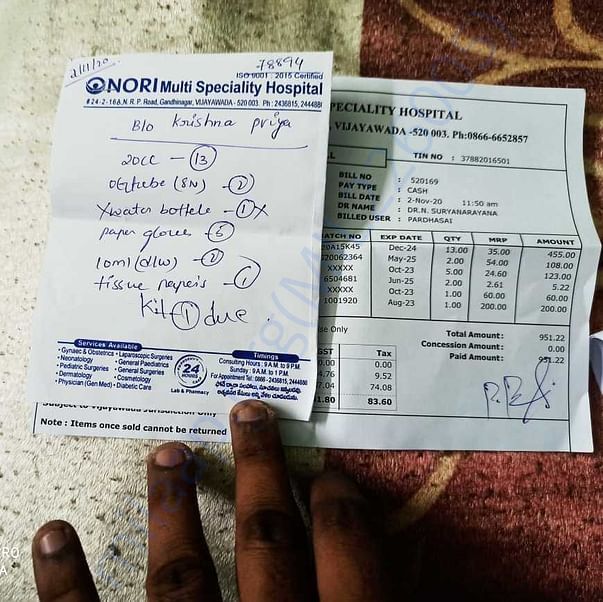 2/11/20
78894
ISO 9001 : 2015 Certified
NORI Multi Speciality Hospital
# 24-2-16, N. R. P. Road, Gandhinagar, VIJAYAWADA - 520 003. Ph : 2436815, 2444880
B/o Krishna Priya
20CC — 13
tube (8N) — 2
X water bottele — 1 X
paper gloves — 5
10ml (d/w) — 2
tissue papers — 1
Kit 1 due.
Services Available
• Gynaec & Obstetrics • Laparoscopic Surgeries
• Neonatology • General Paediatrics
• Pediatric Surgeries • General Surgeries
• Dermatology • Cosmetology
• Physician (Gen.Med) • Diabetic Care
24
HOURS
Lab & Pharmacy
Timings
Consulting Hours : 9 A.M. to 9 P.M.
Sunday : 9 A.M. to 1 P.M.
For Appointment Tel : 0866 - 2436815, 2444880
PECIALITY HOSPITAL
VIJAYAWADA -520 003. Ph:0866-6652857
LL
TIN NO : 37882016501
BILL NO : 520169
PAY TYPE : CASH
BILL DATE : 2-Nov-20 11:50 am
DR NAME : DR.N. SURYANARAYANA
BILLED USER : PARDHASAI
ATCH NO EXP DATE QTY MRP AMOUNT
20A15K45 Dec-24 13.00 35.00 455.00
20062364 May-25 2.00 54.00 108.00
XXXXX Oct-23 5.00 24.60 123.00
6504681 Jun-25 2.00 2.61 5.22
XXXXX Oct-23 1.00 60.00 60.00
1001920 Aug-23 1.00 200.00 200.00
se Only
Total Amount: 951.22
Concession Amount: 0.00
Paid Amount: 951.22
GST Tax
0.00 0.00
4.76 9.52
7.04 74.08
1.80 83.60
Subject to Vijayawada Jurisdiction Only
Note : Items once sold cannot be returned